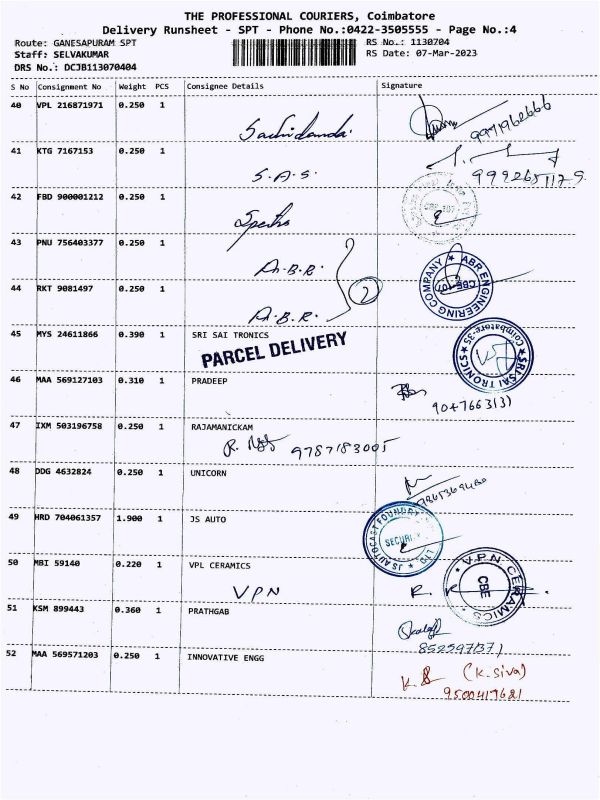 THE PROFESSIONAL COURIERS, Coimbatore
Delivery Runsheet - SPT - Phone No.:0422-3505555 - Page No.:4
Route: GANESAPURAM SPT
RS No.: 1130704
Staff: SELVAKUMAR
RS Date: 07-Mar-2023
DRS No.: DCJB113070404
S No Consignment No Weight PCS Consignee Details Signature
40 VPL 216871971 0.250 1
9971962666
41 KTG 7167153 0.250 1
S.A.S.
42 FBD 900001212 0.250 1
43 PNU 756403377 0.250 1
A.B.R.
ABR ENGINEERING COMPANY ★ CBE-107
44 RKT 9081497 0.250 1
2
A.B.R.
45 MYS 24611866 0.390 1 SRI SAI TRONICS
PARCEL DELIVERY
★ SRI SAI TRONICS ★ Coimbatore-35
46 MAA 569127103 0.310 1 PRADEEP
47 IXM 503196758 0.250 1 RAJAMANICKAM
9787183005
48 DDG 4632824 0.250 1 UNICORN
49 HRD 704061357 1.900 1 JS AUTO
JS AUTOCAST FOUNDRY LTD ★
50 MBI 59140 0.220 1 VPL CERAMICS
VPN
VPN CERAMICS CBE
51 KSM 899443 0.360 1 PRATHGAB
52 MAA 569571203 0.250 1 INNOVATIVE ENGG
(K.Siva)
9500417621